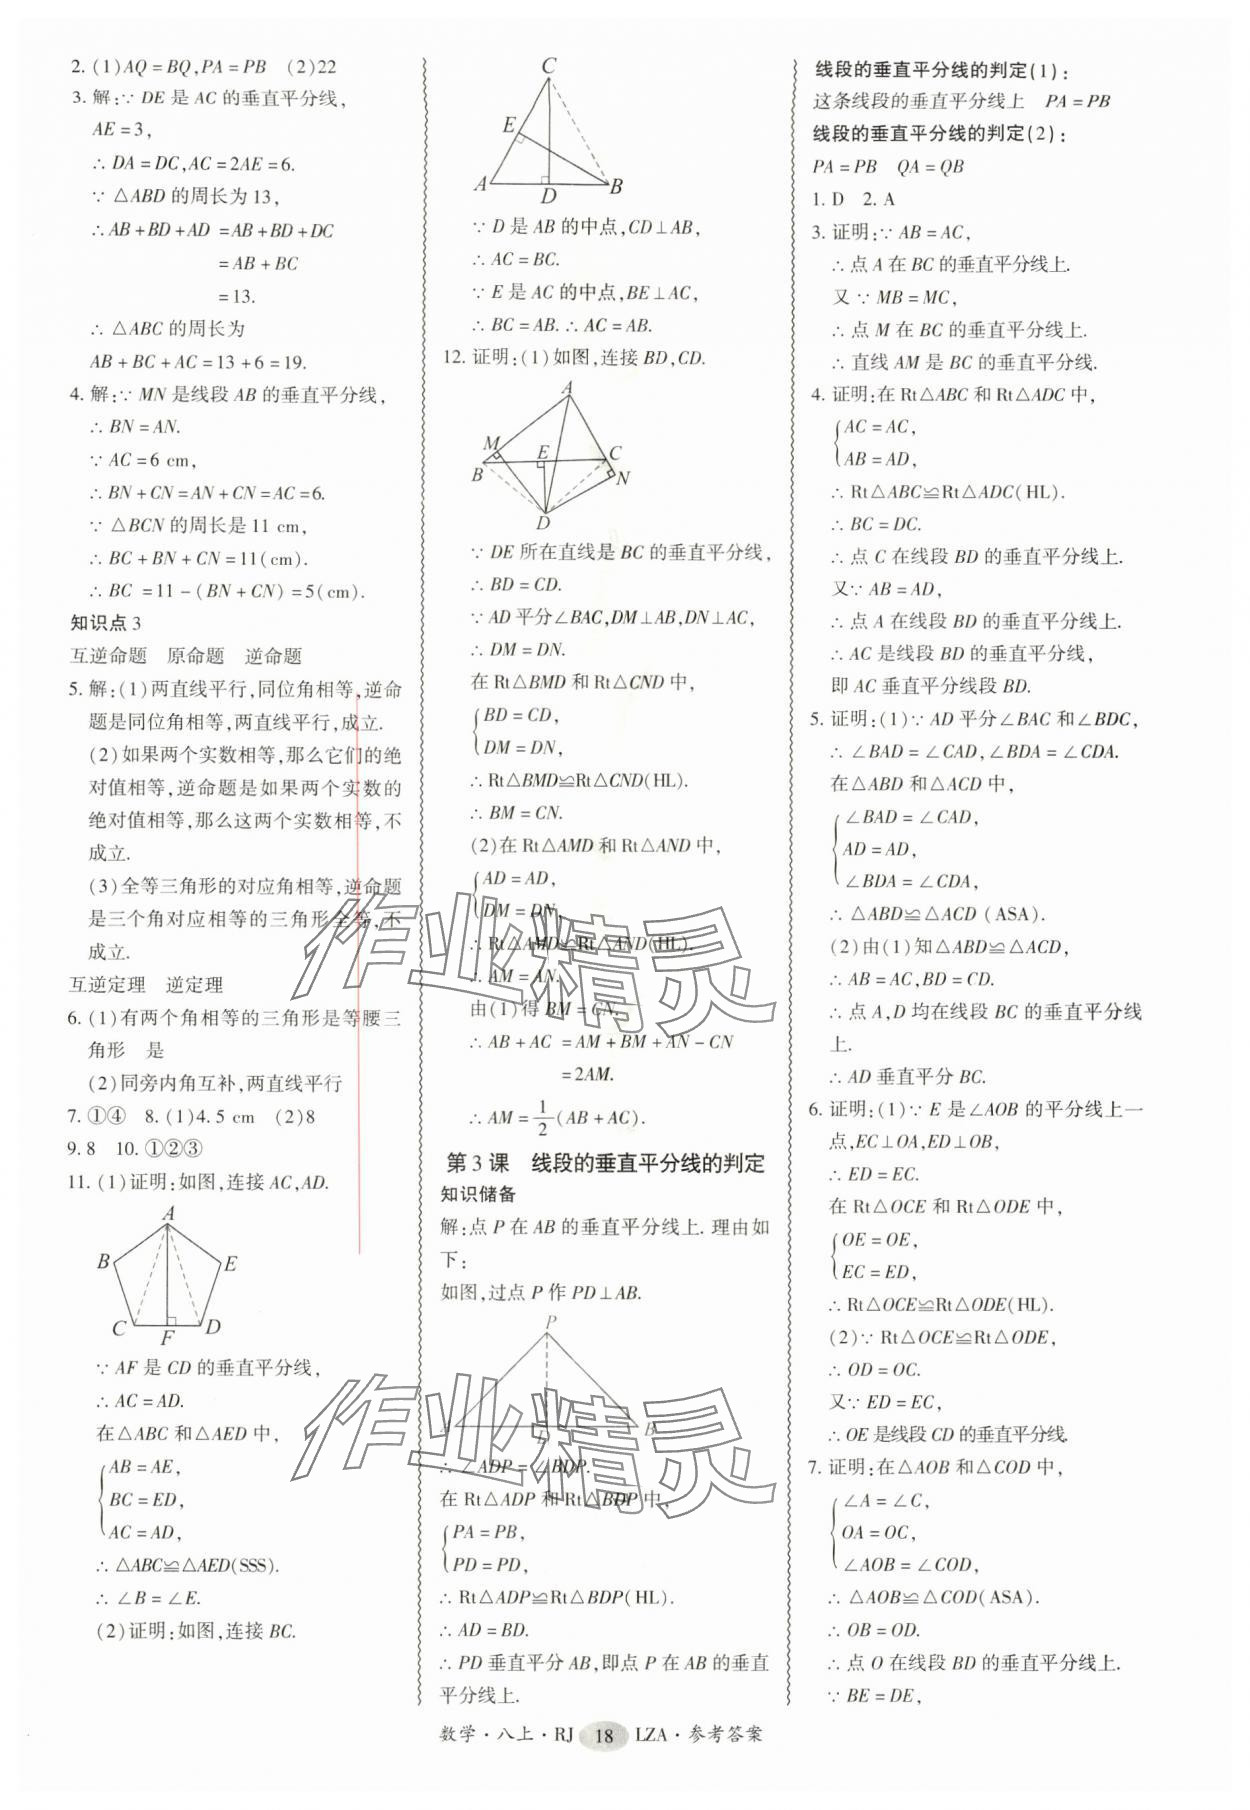 2. (1)AQ=BQ,PA=PB (2)22
3. 解:∵ DE 是 AC 的垂直平分线,
AE=3,
∴ DA=DC,AC=2AE=6.
∵ △ABD 的周长为 13,
∴AB+BD+AD =AB+BD+DC
=AB+BC
=13.
∴ △ABC 的周长为
AB+BC+AC=13+6=19.
4. 解:∵ MN 是线段 AB 的垂直平分线,
∴ BN=AN.
∵ AC=6 cm,
∴ BN+CN=AN+CN=AC=6.
∵ △BCN 的周长是 11 cm,
∴ BC+BN+CN=11(cm).
∴ BC =11-(BN+CN)=5(cm).
知识点 3
互逆命题 原命题 逆命题
5. 解:(1)两直线平行,同位角相等,逆命
题是同位角相等,两直线平行,成立.
(2)如果两个实数相等,那么它们的绝
对值相等,逆命题是如果两个实数的
绝对值相等,那么这两个实数相等,不
成立.
(3)全等三角形的对应角相等,逆命题
是三个角对应相等的三角形全等,不
成立.
互逆定理 逆定理
6. (1)有两个角相等的三角形是等腰三
角形 是
(2)同旁内角互补,两直线平行
7. ①④ 8. (1)4.5 cm (2)8
9. 8 10. ①②③
11. (1)证明:如图,连接 AC,AD.
A
B
E
C
F
D
∵ AF 是 CD 的垂直平分线,
∴ AC=AD.
在△ABC 和△AED 中,
AB=AE,
BC=ED,
AC=AD,
∴ △ABC≌△AED(SSS).
∴ ∠B=∠E.
(2)证明:如图,连接 BC.
C
E
A
D
B
∵ D 是 AB 的中点,CD⊥AB,
∴ AC=BC.
∵ E 是 AC 的中点,BE⊥AC,
∴ BC=AB. ∴ AC=AB.
12. 证明:(1)如图,连接 BD,CD.
A
M
E
C
B
N
D
∵ DE 所在直线是 BC 的垂直平分线,
∴ BD=CD.
∵ AD 平分∠BAC,DM⊥AB,DN⊥AC,
∴ DM=DN.
在 Rt△BMD 和 Rt△CND 中,
BD=CD,
DM=DN,
∴ Rt△BMD≌Rt△CND(HL).
∴ BM=CN.
(2)在 Rt△AMD 和 Rt△AND 中,
AD=AD,
DM=DN,
∴ Rt△AMD≌Rt△AND(HL).
∴ AM=AN.
由(1)得 BM=CN.
∴ AB+AC =AM+BM+AN-CN
=2AM.
∴ AM=1/2(AB+AC).
第 3 课 线段的垂直平分线的判定
知识储备
解:点 P 在 AB 的垂直平分线上. 理由如
下:
如图,过点 P 作 PD⊥AB.
P
A
D
B
∴ ∠ADP=∠BDP.
在 Rt△ADP 和 Rt△BDP 中,
PA=PB,
PD=PD,
∴ Rt△ADP≌Rt△BDP(HL).
∴ AD=BD.
∴ PD 垂直平分 AB,即点 P 在 AB 的垂直
平分线上.
线段的垂直平分线的判定(1):
这条线段的垂直平分线上 PA=PB
线段的垂直平分线的判定(2):
PA=PB QA=QB
1. D 2. A
3. 证明:∵ AB=AC,
∴ 点 A 在 BC 的垂直平分线上.
又 ∵ MB=MC,
∴ 点 M 在 BC 的垂直平分线上.
∴ 直线 AM 是 BC 的垂直平分线.
4. 证明:在 Rt△ABC 和 Rt△ADC 中,
AC=AC,
AB=AD,
∴ Rt△ABC≌Rt△ADC(HL).
∴ BC=DC.
∴ 点 C 在线段 BD 的垂直平分线上.
又∵ AB=AD,
∴ 点 A 在线段 BD 的垂直平分线上.
∴ AC 是线段 BD 的垂直平分线,
即 AC 垂直平分线段 BD.
5. 证明:(1)∵ AD 平分∠BAC 和∠BDC,
∴ ∠BAD=∠CAD,∠BDA=∠CDA.
在△ABD 和△ACD 中,
∠BAD=∠CAD,
AD=AD,
∠BDA=∠CDA,
∴ △ABD≌△ACD (ASA).
(2)由(1)知△ABD≌△ACD,
∴ AB=AC,BD=CD.
∴ 点 A,D 均在线段 BC 的垂直平分线
上.
∴ AD 垂直平分 BC.
6. 证明:(1)∵ E 是∠AOB 的平分线上一
点,EC⊥OA,ED⊥OB,
∴ ED=EC.
在 Rt△OCE 和 Rt△ODE 中,
OE=OE,
EC=ED,
∴ Rt△OCE≌Rt△ODE(HL).
(2)∵ Rt△OCE≌Rt△ODE,
∴ OD=OC.
又∵ ED=EC,
∴ OE是线段 CD 的垂直平分线.
7. 证明:在△AOB 和△COD 中,
∠A=∠C,
OA=OC,
∠AOB=∠COD,
∴ △AOB≌△COD(ASA).
∴ OB=OD.
∴ 点 O 在线段 BD 的垂直平分线上.
∵ BE=DE,
数学·八上·RJ 18 LZA·参考答案
作业精灵
作业精灵